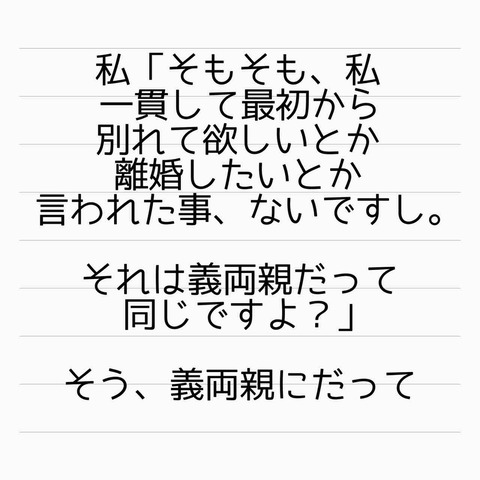 私「そもそも、私
一貫して最初から
別れて欲しいとか
離婚したいとか
言われた事、ないですし。
それは義両親だって
同じですよ？」
そう、義両親にだって